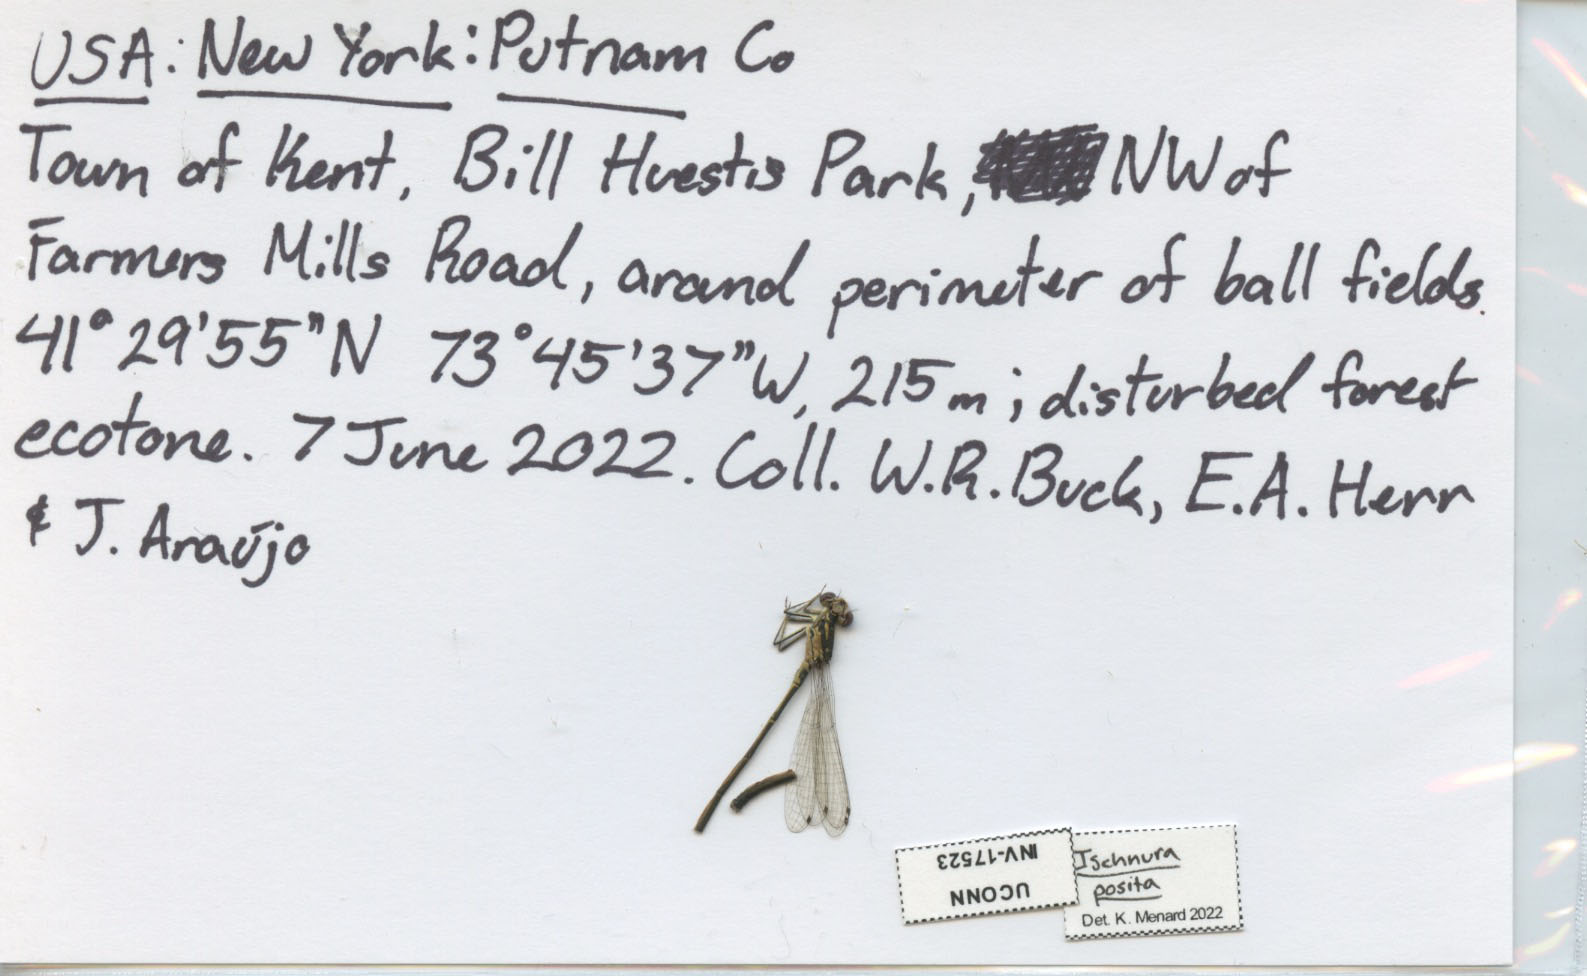 USA: New York: Putnam Co
Town of Kent, Bill Huestis Park, NW of
Farmers Mills Road, around perimeter of ball fields.
41° 29'55"N 73°45'37"W, 215 m; disturbed forest
ecotone. 7 June 2022. Coll. W.R. Buck, E.A. Herr
& J. Araújo
UCONN
INV-17523
Ischnura
posita
Det. K. Menard 2022